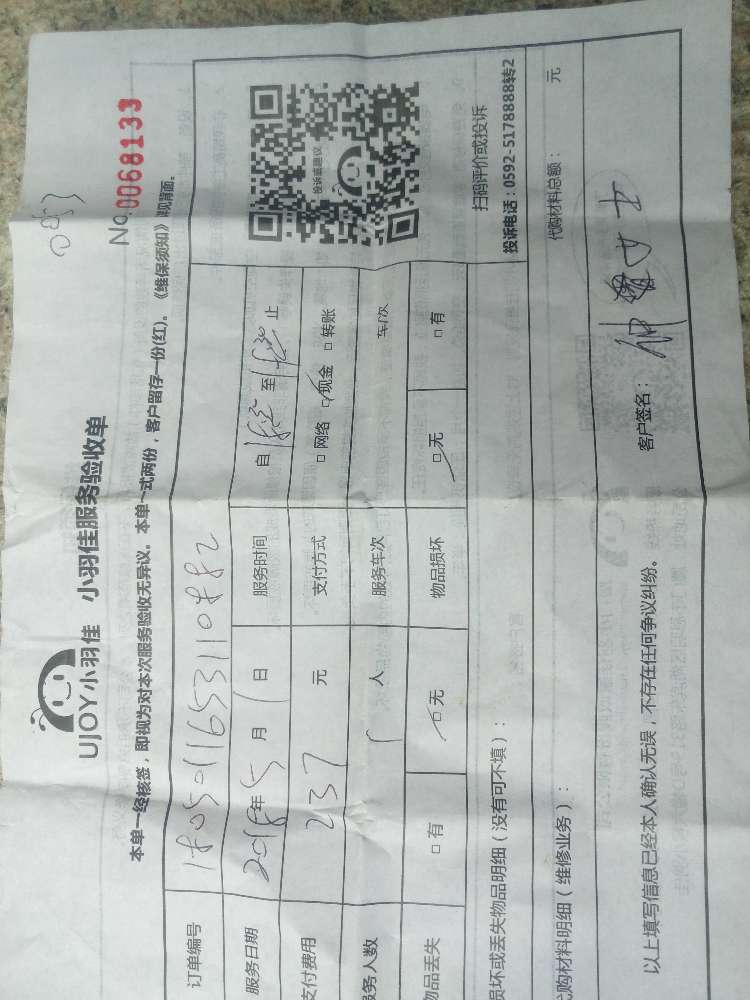 No.0068133
UJOY小羽佳 小羽佳服务验收单
本单一经核签，即视为对本次服务验收无异议。本单一式两份，客户留存一份(红)。《维保须知》详见背面。
订单编号
服务日期 2018年5月1日 服务时间 自 至 止
支付费用 237 元 支付方式 □网络 ☑现金 □转账
服务人数 1 人 服务车次 车/次
物品丢失 □有 ☑无 物品损坏 ☑无 □有
投诉或建议
扫码评价或投诉
投诉电话：0592-5178888转2
损坏或丢失物品明细（没有可不填）：
代购材料明细（维修业务）： 代购材料总额： 元
以上填写信息已经本人确认无误，不存在任何争议纠纷。 客户签名： 女士